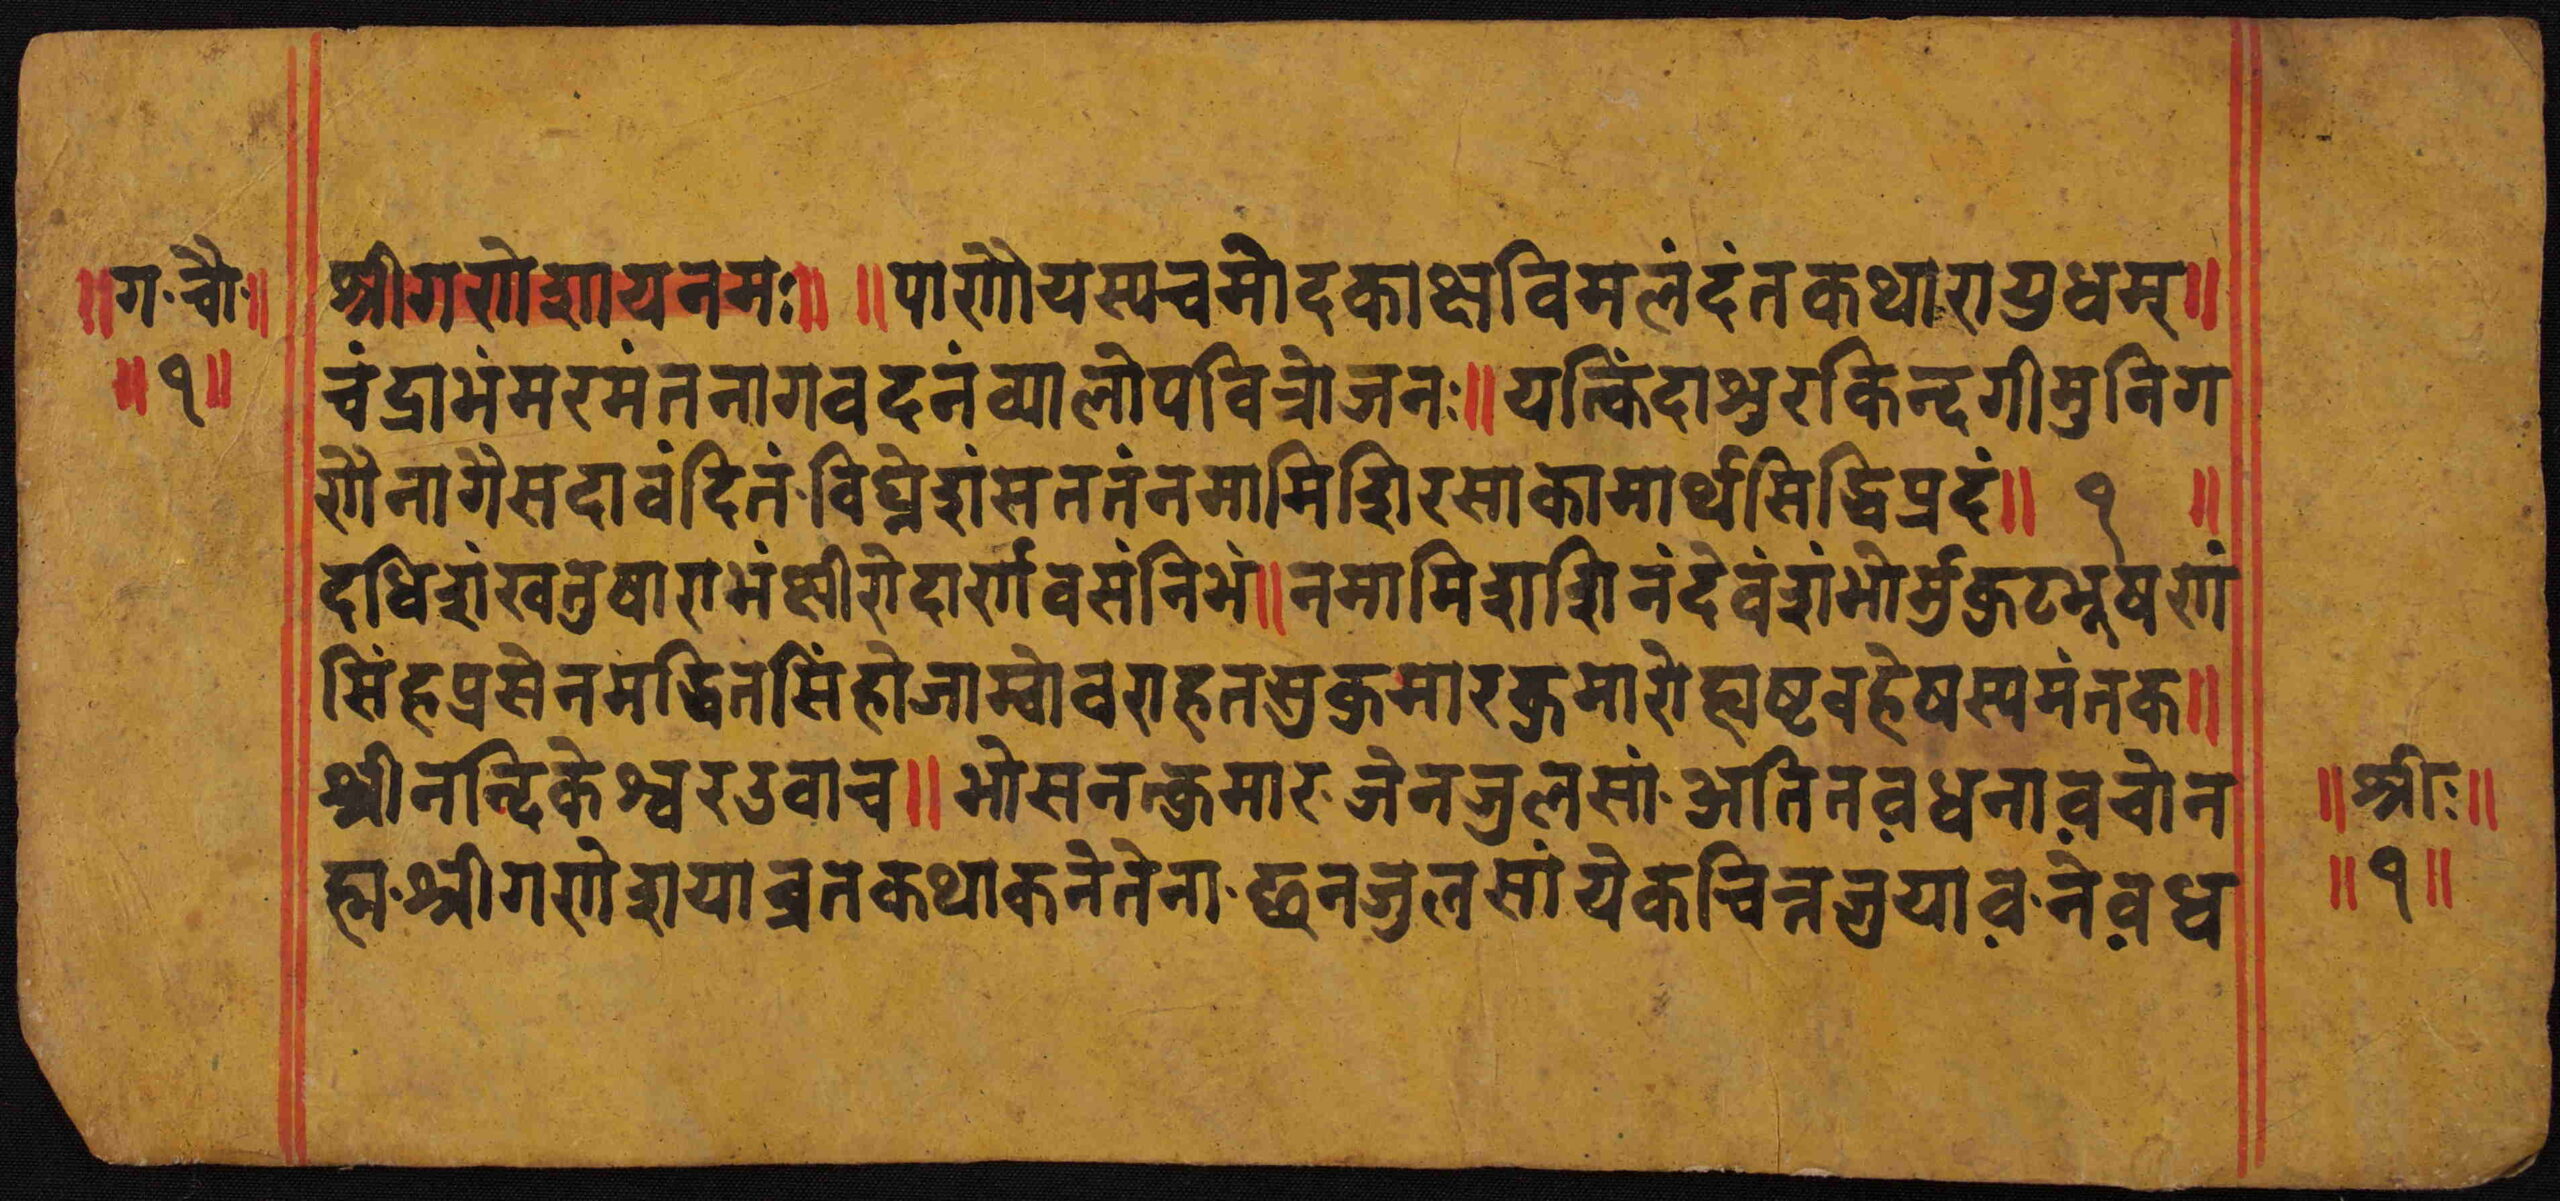 ॥ग·चौ·॥
॥१॥
श्रीगणेशायनमः॥ ॥पाणौयस्यचमोदकाक्षविमलंदंतकथारायुधम्॥
चंद्राभंमरमंतनागवदनंव्यालोपवित्रोजनः॥यत्किंदाश्रुरकिन्दगीमुनिग
णैनागैसदावंदितं·विघ्नेशंसततंनमामिशिरसाकामार्थसिद्धिप्रदं॥ १ ॥
दधिशंखतुषाराभंक्षीरोदार्णवसंनिभं॥नमामिशशिनंदेवंशंभोर्मुकुटभूषणं
सिंहप्रसेनमद्धितसिंहोजाम्वोवराहतसुकुमारकुमारोह्यष्टवहेषस्यमंतक॥
श्रीनन्दिकेश्वरउवाच॥भोसनत्कुमार·जेनजुलसां·अतितव़धनाव़चोन
ह्म·श्रीगणेशयाव्रतकथाकनेतेना·छनजुलसांयेकचित्तजुयाव़·नेव़ध
॥श्रीः॥
॥१॥